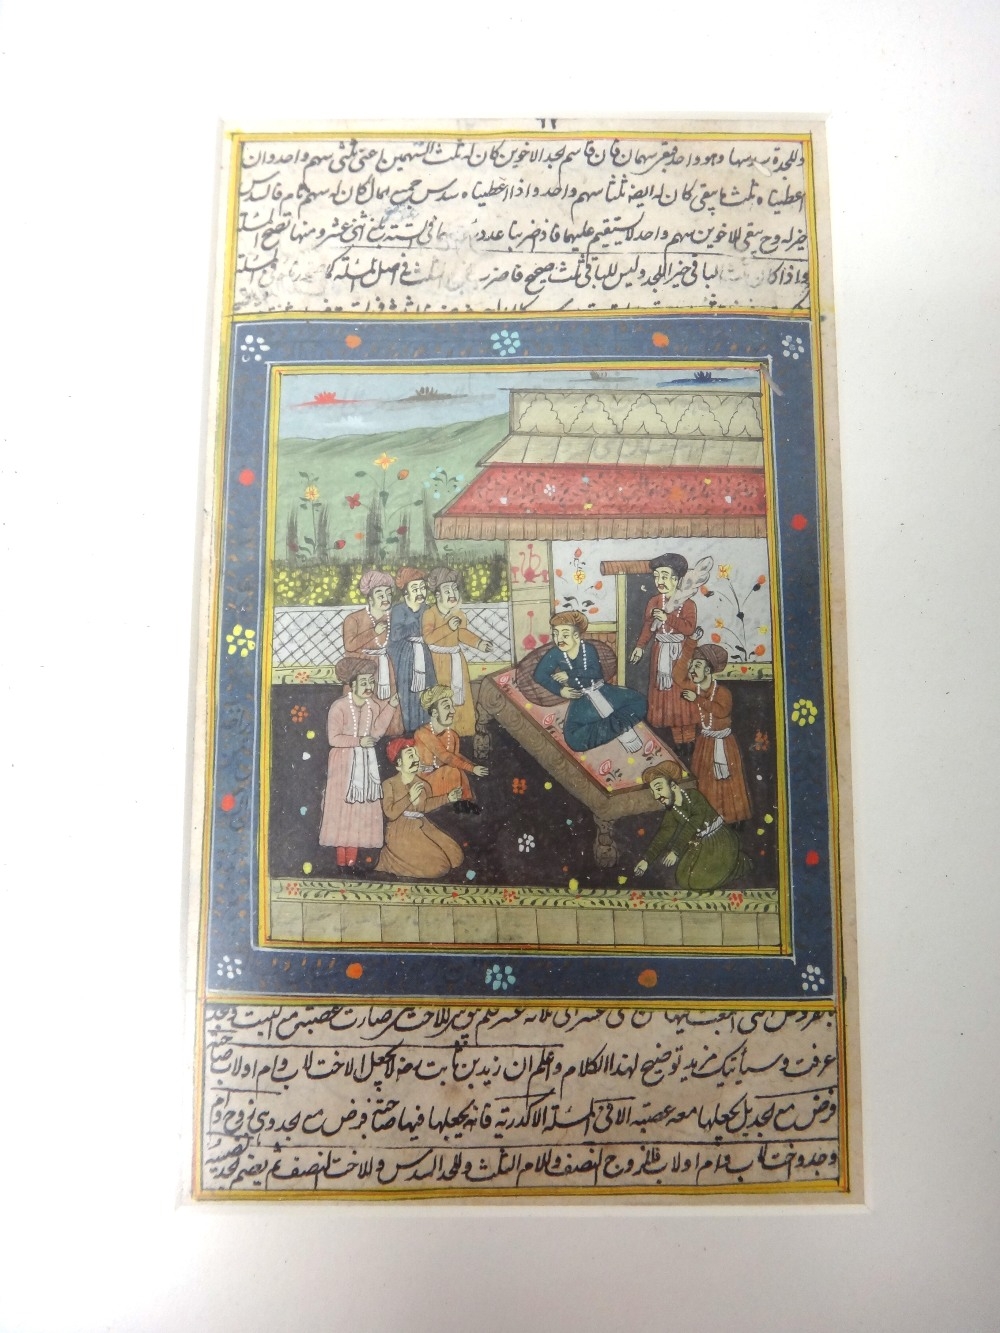 وللجدة سدسها وهو واحد فبقى سهمان فان قاسم لجد الاخوين كان له ثلث السهمين اعنى ثلثى سهم واحد وان
اعطيناه ثلث ما يبقى كان له ايضا ثلثا سهم واحد واذا اعطيناه سدس جميع المال كان له سهم تام فالسدس
خير له وح يبقى للاخوين سهم واحد لا يستقيم عليهما فاذا ضربنا عدد فى الستة بلغ اثنى عشر ومنها تصح المسئلة
واذا كان ثلث الباقى خيرا للجد وليس للباقى ثلث صحيح فاضرب الثلث فى اصل المسئلة
للاخت صارت عصبة من البيت وجد
عرفت وسيأتيك مزيد توضيح لهذا الكلام واعلم ان زيد بن ثابت رضه لا يجعل الاخت لاب وام او لاب صاحبة
فرض مع لجد بل يجعلها معه عصبة الا فى المسئلة الاكدرية فانه يجعلها فيها صاحبة فرض مع لجد وهى زوج وام
وجد واخت لاب وام او لاب فللزوج النصف وللام الثلث وللجد السدس وللاخت النصف ثم يضم لجد نصيبه